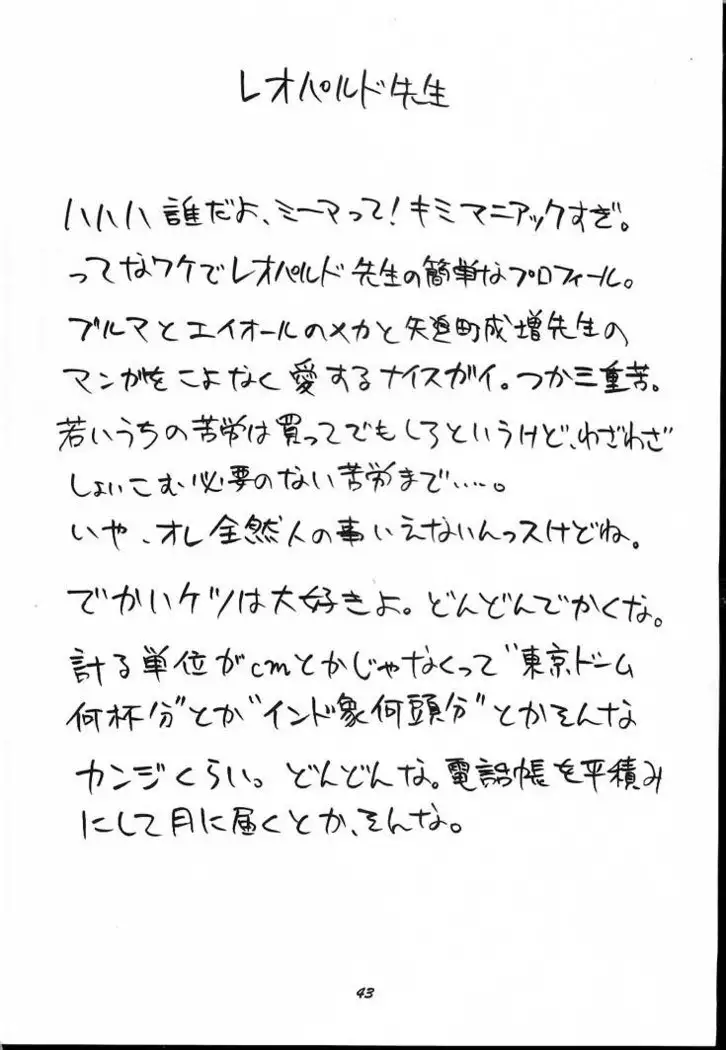 レオパルド先生
ハハハ誰だよ、ミーマって!キミマニアックすぎ。
ってなワケでレオパルド先生の簡単なプロフィール。
ブルマとエイオールのメカと矢追町成増先生の
マンガをこよなく愛するナイスガイ。つか三重苦。
若いうちの苦労は買ってでもしろというけど、わざわざ
しょいこむ必要のない苦労まで……。
いや、オレ全然人の事いえないんっスけどね。
でかいケツは大好きよ。どんどんでかくな。
計る単位がcmとかじゃなくって"東京ドーム
何杯分"とか"インド象何頭分"とかそんな
カンジくらい。どんどんな。電話帳を平積み
にして月に届くとか、そんな。
43